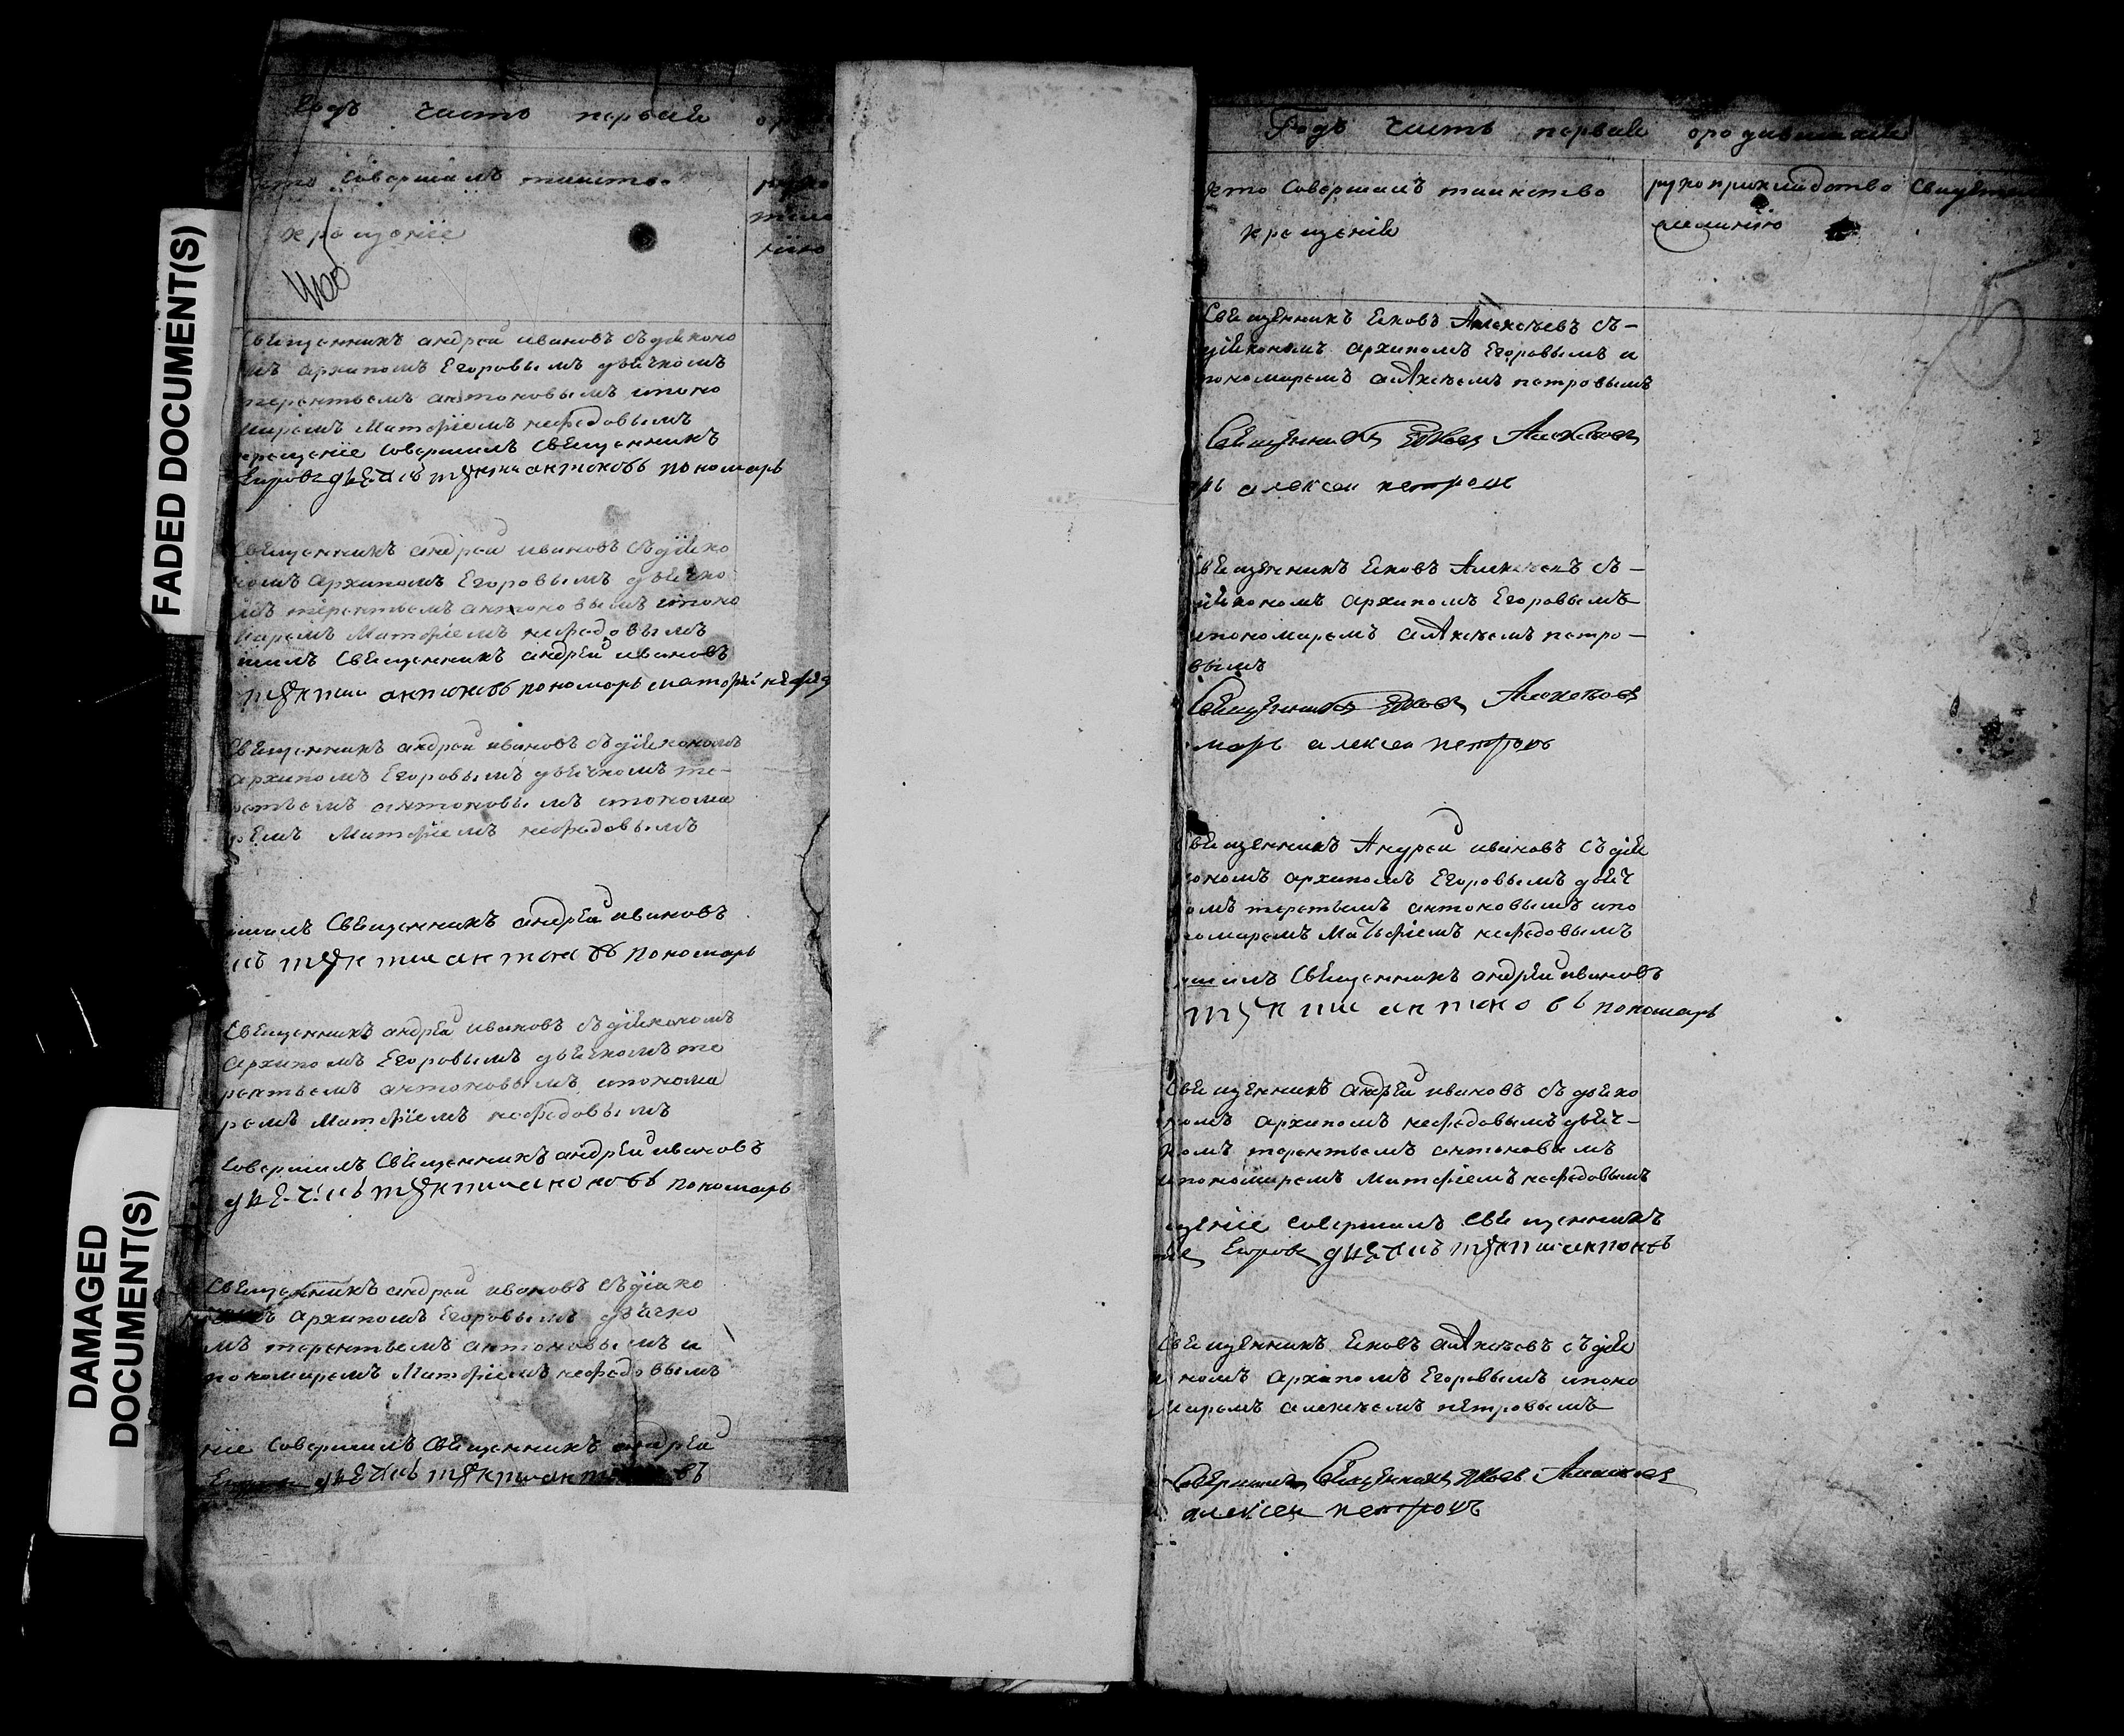 FADED DOCUMENT(S)
DAMAGED
DOCUMENT(S)
Годъ часть первая
кто Совершалъ таинство
крещенiе
Священникъ андрей ивановъ съ дiяконо
мъ архипомъ Егоровымъ дьячкомъ
терентьемъ антоновымъ ипоно
маремъ Матфiемъ нефедовымъ
крещенiе Совершилъ Священникъ
Егоровъ дьячекъ антоновъ пономарь
Священникъ андрей ивановъ съ дiяко
номъ архипомъ Егоровымъ дьячко
мъ терентьемъ антоновымъ ипоно
маремъ Матфiемъ нефедовымъ
шилъ Священникъ андрей ивановъ
антоновъ пономарь матфей
Священникъ андрей ивановъ съ дiякономъ
архипомъ Егоровымъ дьячкомъ те-
рентьемъ антоновымъ ипонома
ремъ Матфiемъ нефедовымъ
шилъ Священникъ андрей ивановъ
антоновъ пономарь
Священникъ андрей ивановъ съ дiякономъ
архипомъ Егоровымъ дьячкомъ те
рентьемъ антоновымъ ипонома
ремъ Матфiемъ нефедовымъ
Совершилъ Священникъ андрей ивановъ
дьячекъ пономарь
Священникъ андрей ивановъ съ дiяко
архипомъ Егоровымъ дьячко
мъ терентьемъ антоновымъ и
пономаремъ Матфiемъ нефедовымъ
нiе Совершилъ Священникъ андрей
дьячекъ
Годъ часть первая ородившихся
кто Совершалъ таинство
крещенiя
рукоприкладство
желанiю
Священникъ Яковъ Алексѣевъ съ-
дiякономъ архипомъ Егоровымъ и
пономаремъ алексѣемъ петровымъ
Священникъ Яковъ Алексѣевъ
рь алексей петровъ
Священникъ Яковъ Алексѣевъ съ-
дiякономъ архипомъ Егоровымъ
ипономаремъ алексѣемъ петро-
вымъ
Священникъ Яковъ Алексѣевъ
марь алексей петровъ
Священникъ Андрей ивановъ съ дiя
кономъ архипомъ Егоровымъ дьяч
комъ терентьемъ антоновымъ ипо
номаремъ Матьфiемъ нефедовымъ
шилъ Священникъ андрей ивановъ
антоновъ пономарь
Священникъ андрей ивановъ съ дьяко
номъ архипомъ нефедовымъ дьяч-
комъ терентьемъ антоновымъ
ипономаремъ Матфiемъ нефедовымъ
щенiе Совершилъ Священникъ
Егоровъ дьячекъ антоновъ
Священникъ Яковъ алексѣевъ съ дiя
кономъ архипомъ Егоровымъ ипоно
маремъ алексѣемъ петровымъ
Совершилъ Священникъ Яковъ Алексѣевъ
алексей петровъ